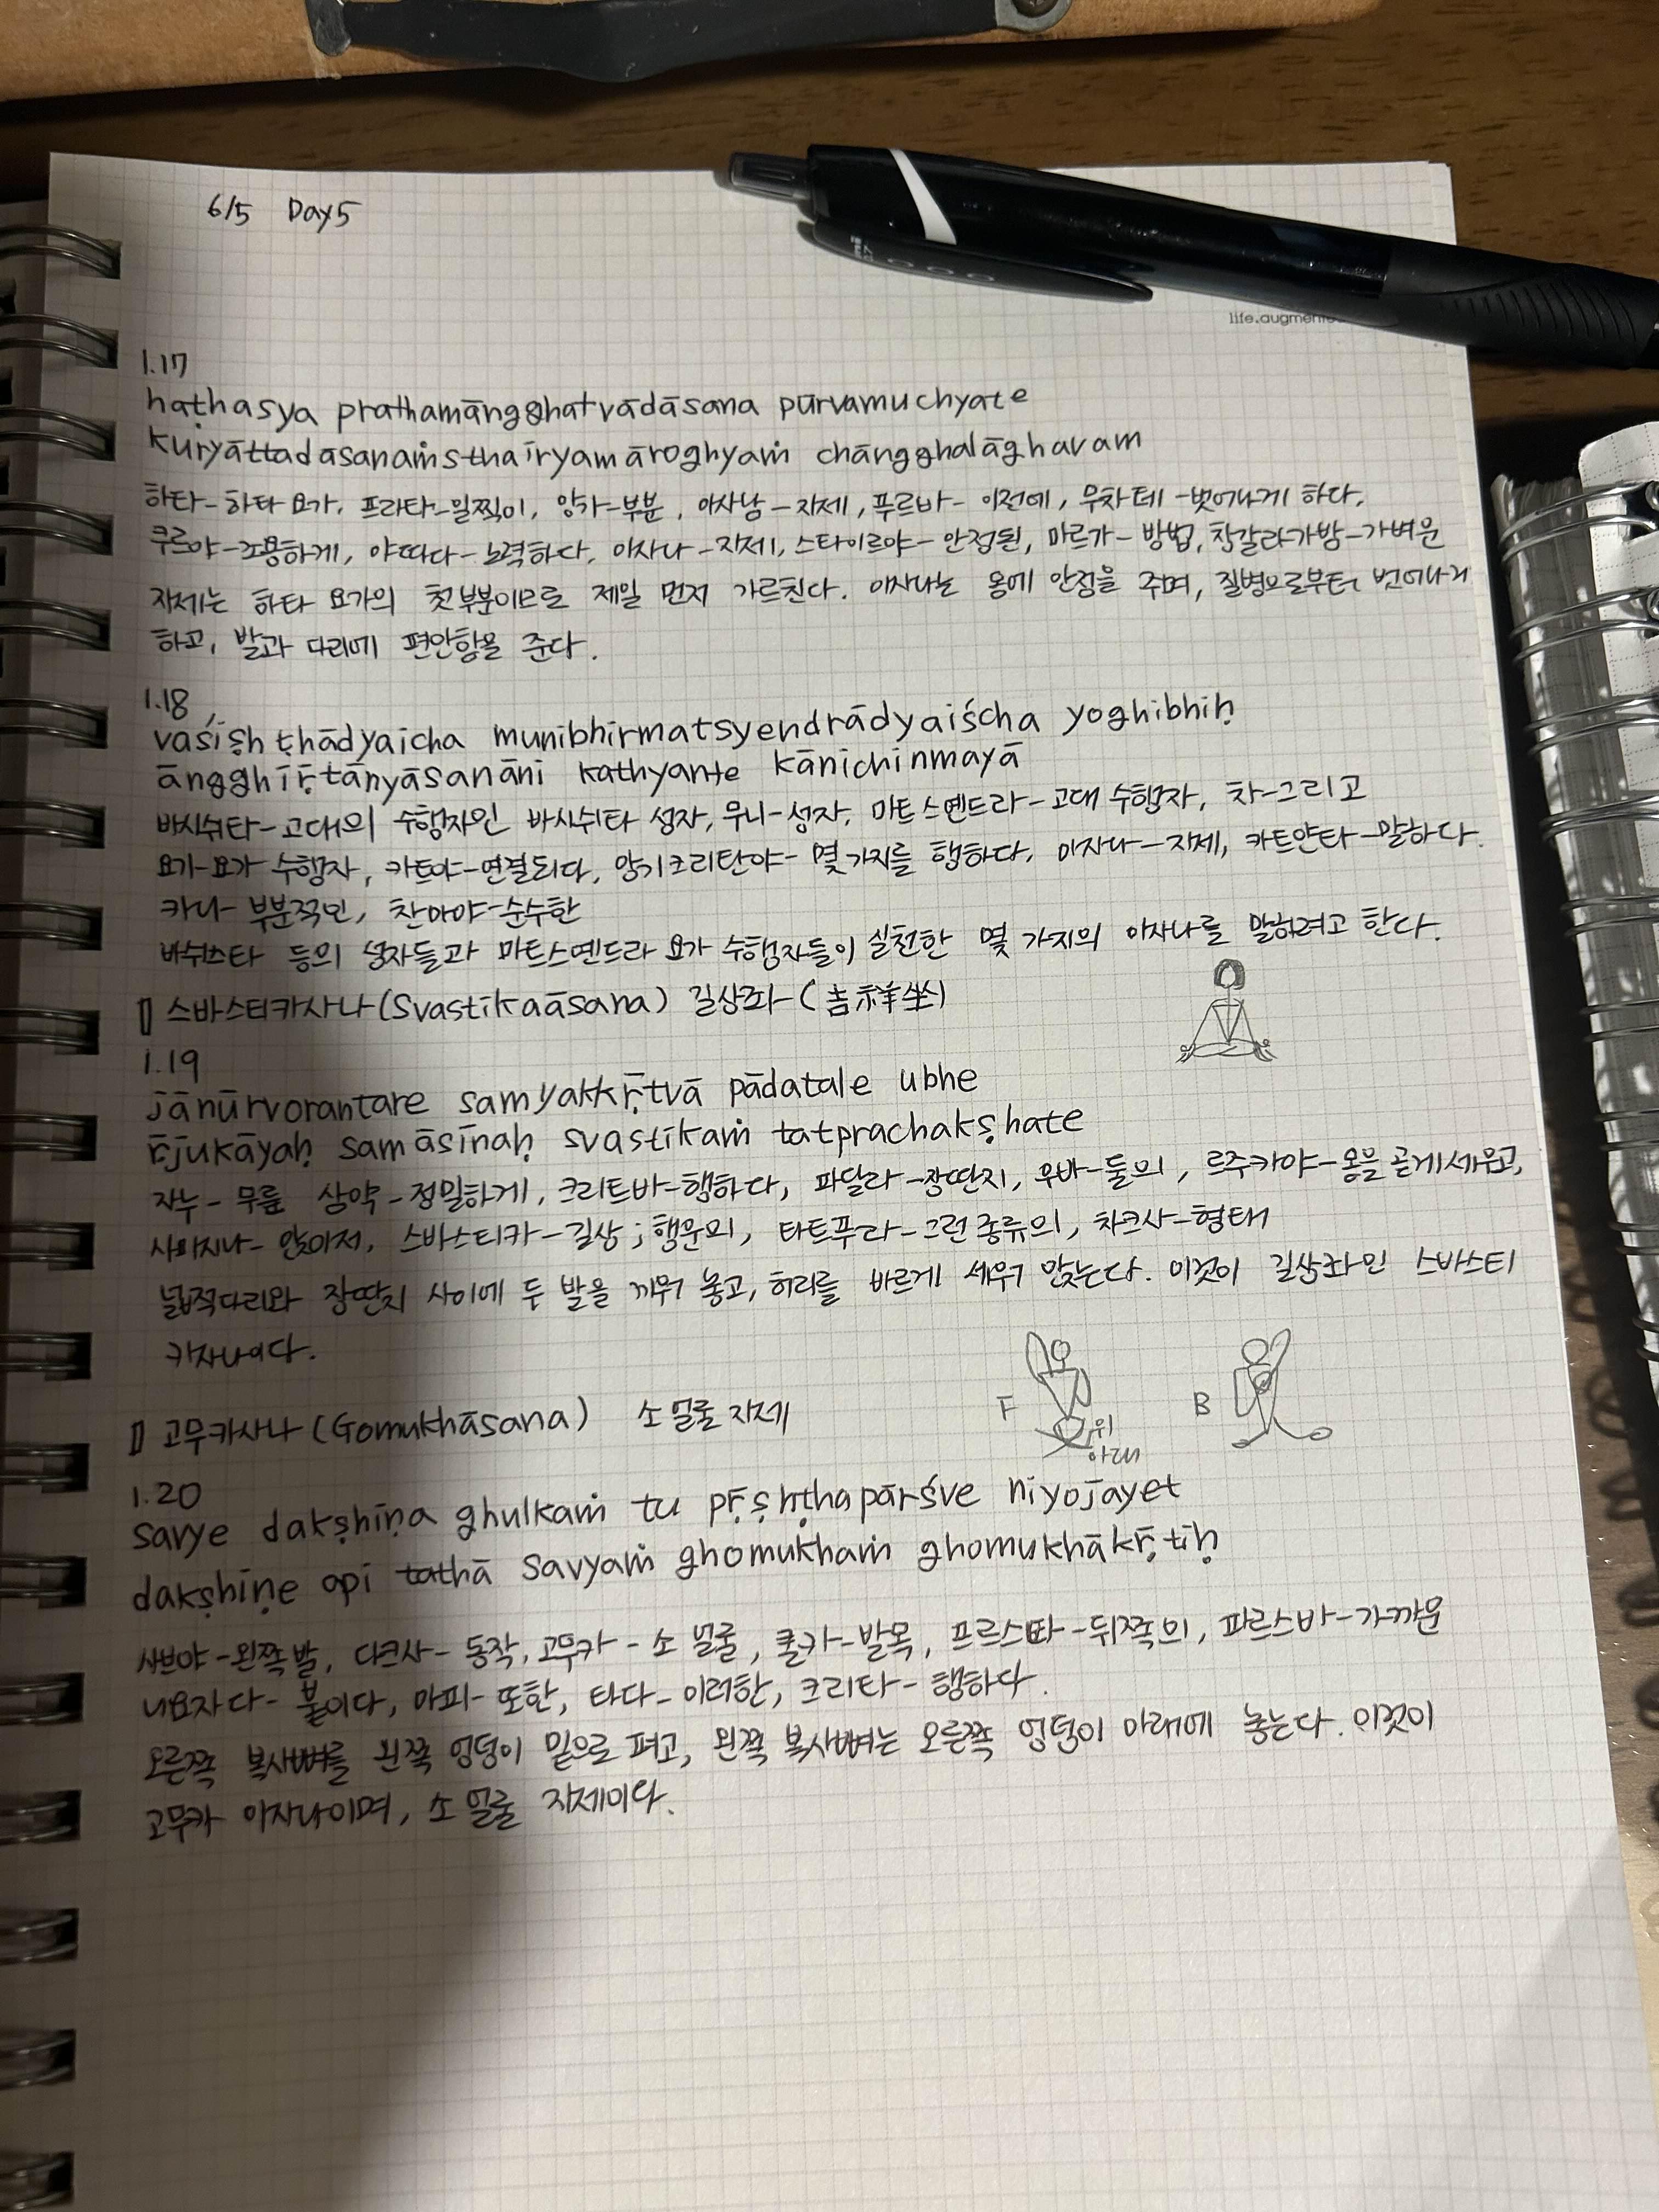 6/5 Day5
life.augmente
1.17
haṭhasya prathamāngghatvādāsana pūrvamuchyate
kuryāttadāsanaṁsthairyamāroghyaṁ chāngghalāghavam
하타-하타 요가, 프라타-일찍이, 앙가-부분, 아사남-자세, 푸르바-이전에, 무차테-벗어나게 하다,
쿠르야-조용하게, 야따다-노력하다, 아사나-자세, 스타이르야-안정된, 마르가-방법, 창갈라가방-가벼운
자세는 하타 요가의 첫부분이므로 제일 먼저 가르친다. 아사나는 몸에 안정을 주며, 질병으로부터 벗어나게
하고, 발과 다리에 편안함을 준다.
1.18
vaśiṣhṭhādyaicha munibhirmatsyendrādyaiścha yoghibhiḥ
āngghīṝtānyāsanāni kathyante kānichinmayā
바시쉬타-고대의 수행자인 바시쉬타 성자, 무니-성자, 마트스옌드라-고대 수행자, 차-그리고
요가-요가 수행자, 카트야-연결되다, 앙기크리탄야-몇가지를 행하다, 아사나-자세, 카트얀타-말하다.
카니-부분적인, 찬마야-순수한
바쉬스타 등의 성자들과 마트스옌드라 요가 수행자들이 실천한 몇 가지의 아사나를 말하려고 한다.
스바스티카사나(Svastikaāsana) 길상좌(吉祥坐)
1.19
jānūrvorantare samyakkṝtvā pādatale ubhe
ṝjukāyaḥ samāsīnaḥ svastikaṁ tatprachakṣhate
자누-무릎 삼약-정밀하게, 크리트바-행하다, 파달라-장딴지, 우바-둘의, 르주카야-몸을 곧게세우고,
사마시나-앉아서, 스바스티카-길상; 행운의, 타트푸라-그런 종류의, 차크사-형태
넓적다리와 장딴지 사이에 두 발을 끼워 놓고, 허리를 바르게 세워 앉는다. 이것이 길상좌인 스바스티
카사나이다.
고무카사나 (Gomukhāsana) 소 얼굴 자세
F 위 아래 B
1.20
savye dakṣhiṇa ghulkaṁ tu pṝṣhṭhapārśve niyojayet
dakṣhiṇe api tathā savyaṁ ghomukhaṁ ghomukhākṝtiḥ
사브야-왼쪽 발, 다크사-동작, 고무카-소 얼굴, 쿨카-발목, 프르스따-뒤쪽의, 파르스바-가까운
니요자다-붙이다, 아피-또한, 타다-이러한, 크리타-행하다.
오른쪽 복사뼈를 왼쪽 엉덩이 밑으로 펴고, 왼쪽 복사뼈는 오른쪽 엉덩이 아래에 놓는다. 이것이
고무카 아사나이며, 소 얼굴 자세이다.